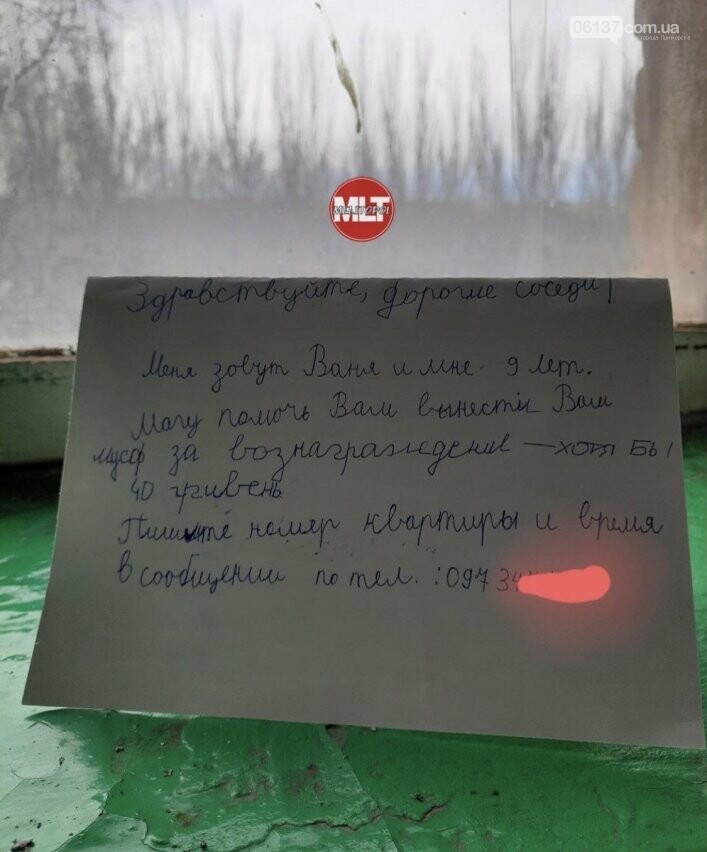 06137.com.ua
MLT
Здравствуйте, дорогие соседи!
Меня зовут Ваня и мне 9 лет.
Магу помочь Вам вынести Вам
мусор за вознаграждение — хотя бы
40 гривень
Пишите номер квартиры и время
в сообщении по тел. : 097 34